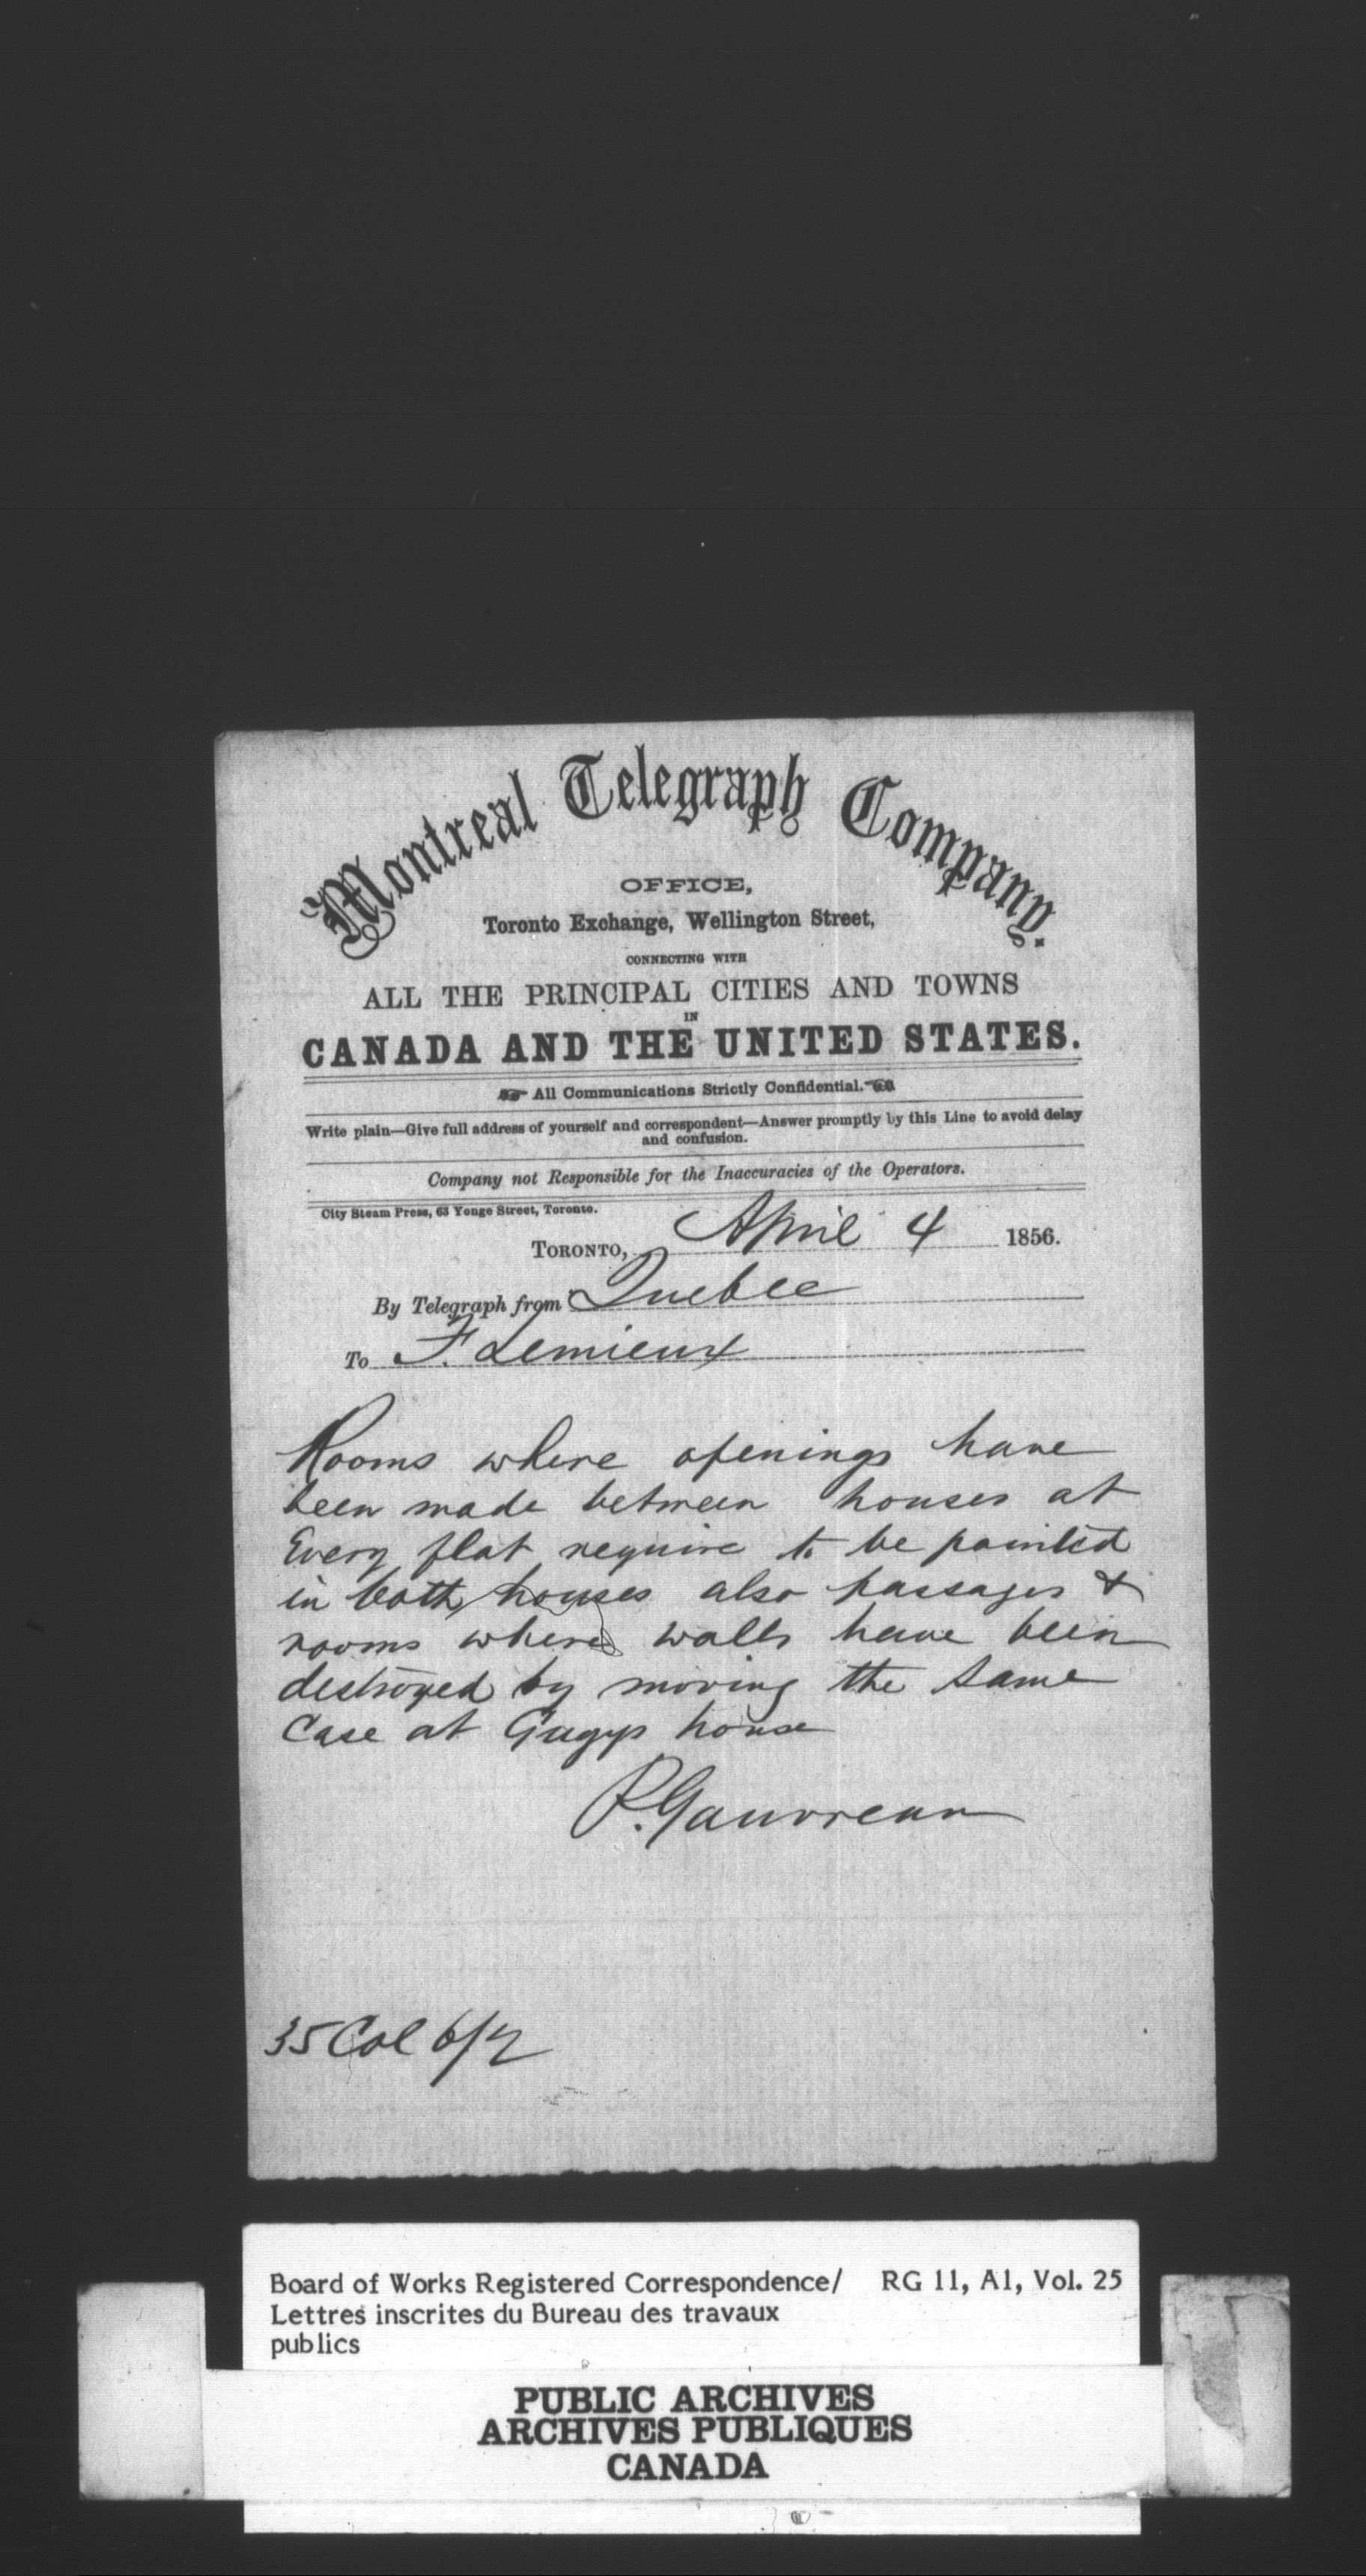 Montreal Telegraph Company.
OFFICE,
Toronto Exchange, Wellington Street,
CONNECTING WITH
ALL THE PRINCIPAL CITIES AND TOWNS
IN
CANADA AND THE UNITED STATES.
All Communications Strictly Confidential.
Write plain—Give full address of yourself and correspondent—Answer promptly by this Line to avoid delay
and confusion.
Company not Responsible for the Inaccuracies of the Operators.
City Steam Press, 63 Yonge Street, Toronto.
TORONTO, April 4 1856.
By Telegraph from Quebec
To F. Lemieux
Rooms where openings have
been made between houses at
Every flat require to be painted
in both houses also passages &
rooms where walls have been
destroyed by moving the same
Case at Gugys house
P. Gauvreau
35 Col 6/2
Board of Works Registered Correspondence/ RG 11, A1, Vol. 25
Lettres inscrites du Bureau des travaux
publics
PUBLIC ARCHIVES
ARCHIVES PUBLIQUES
CANADA